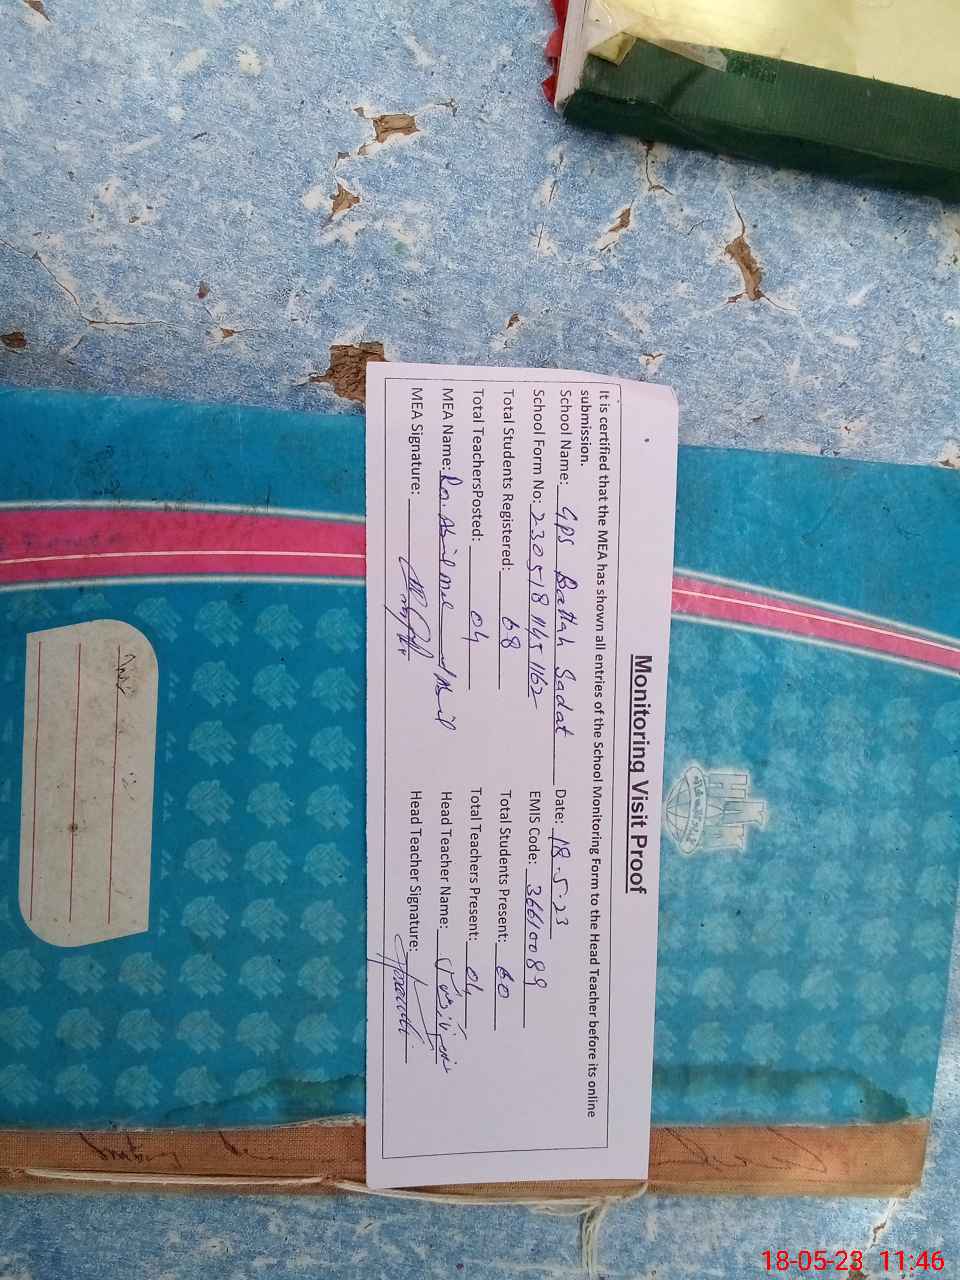 Monitoring Visit Proof
It is certified that the MEA has shown all entries of the School Monitoring Form to the Head Teacher before its online
submission.
School Name: GPS Battah Sadat Date: 18.5.23
School Form No: 230518 145 1162 EMIS Code: 36610089
Total Students Registered: 68 Total Students Present: 60
Total TeachersPosted: 04 Total Teachers Present: 04
MEA Name: Head Teacher Name:
MEA Signature: Head Teacher Signature:
18-05-23 11:46